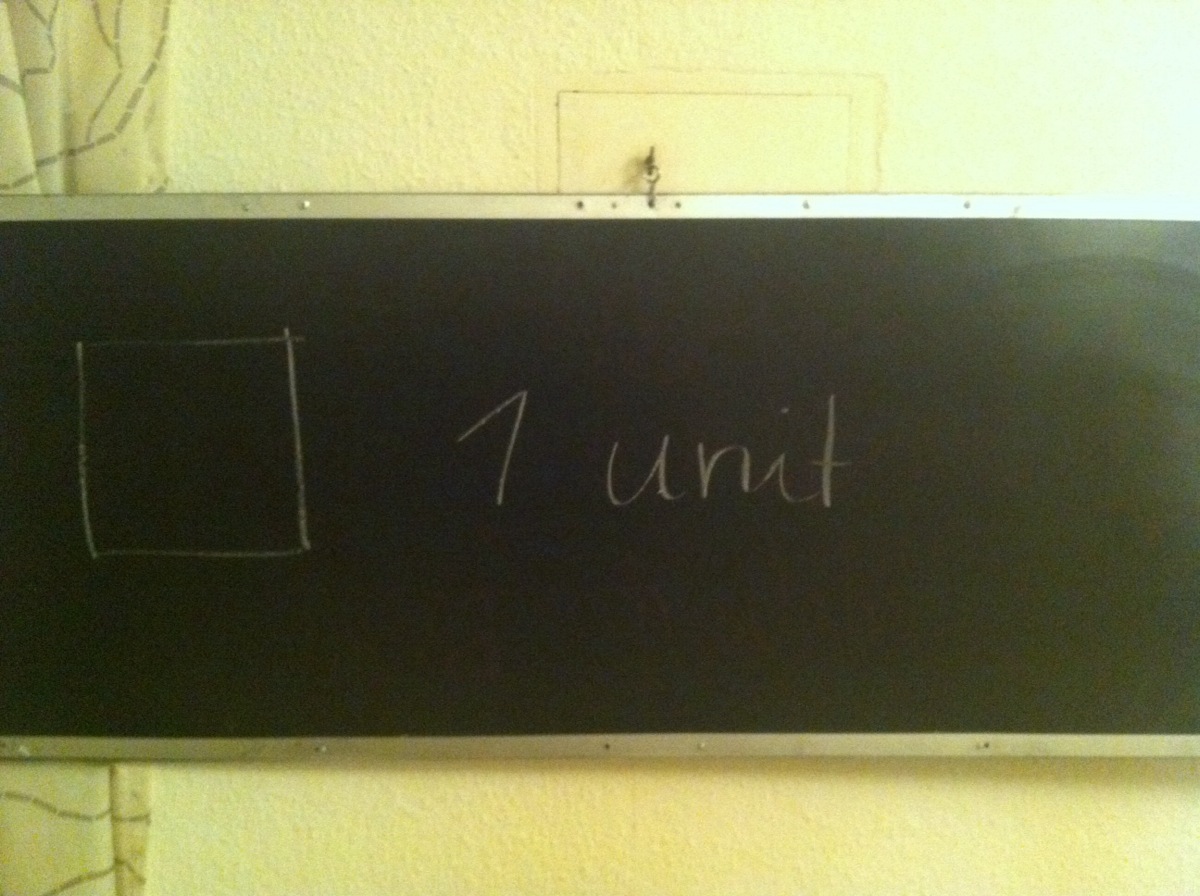 1 unit